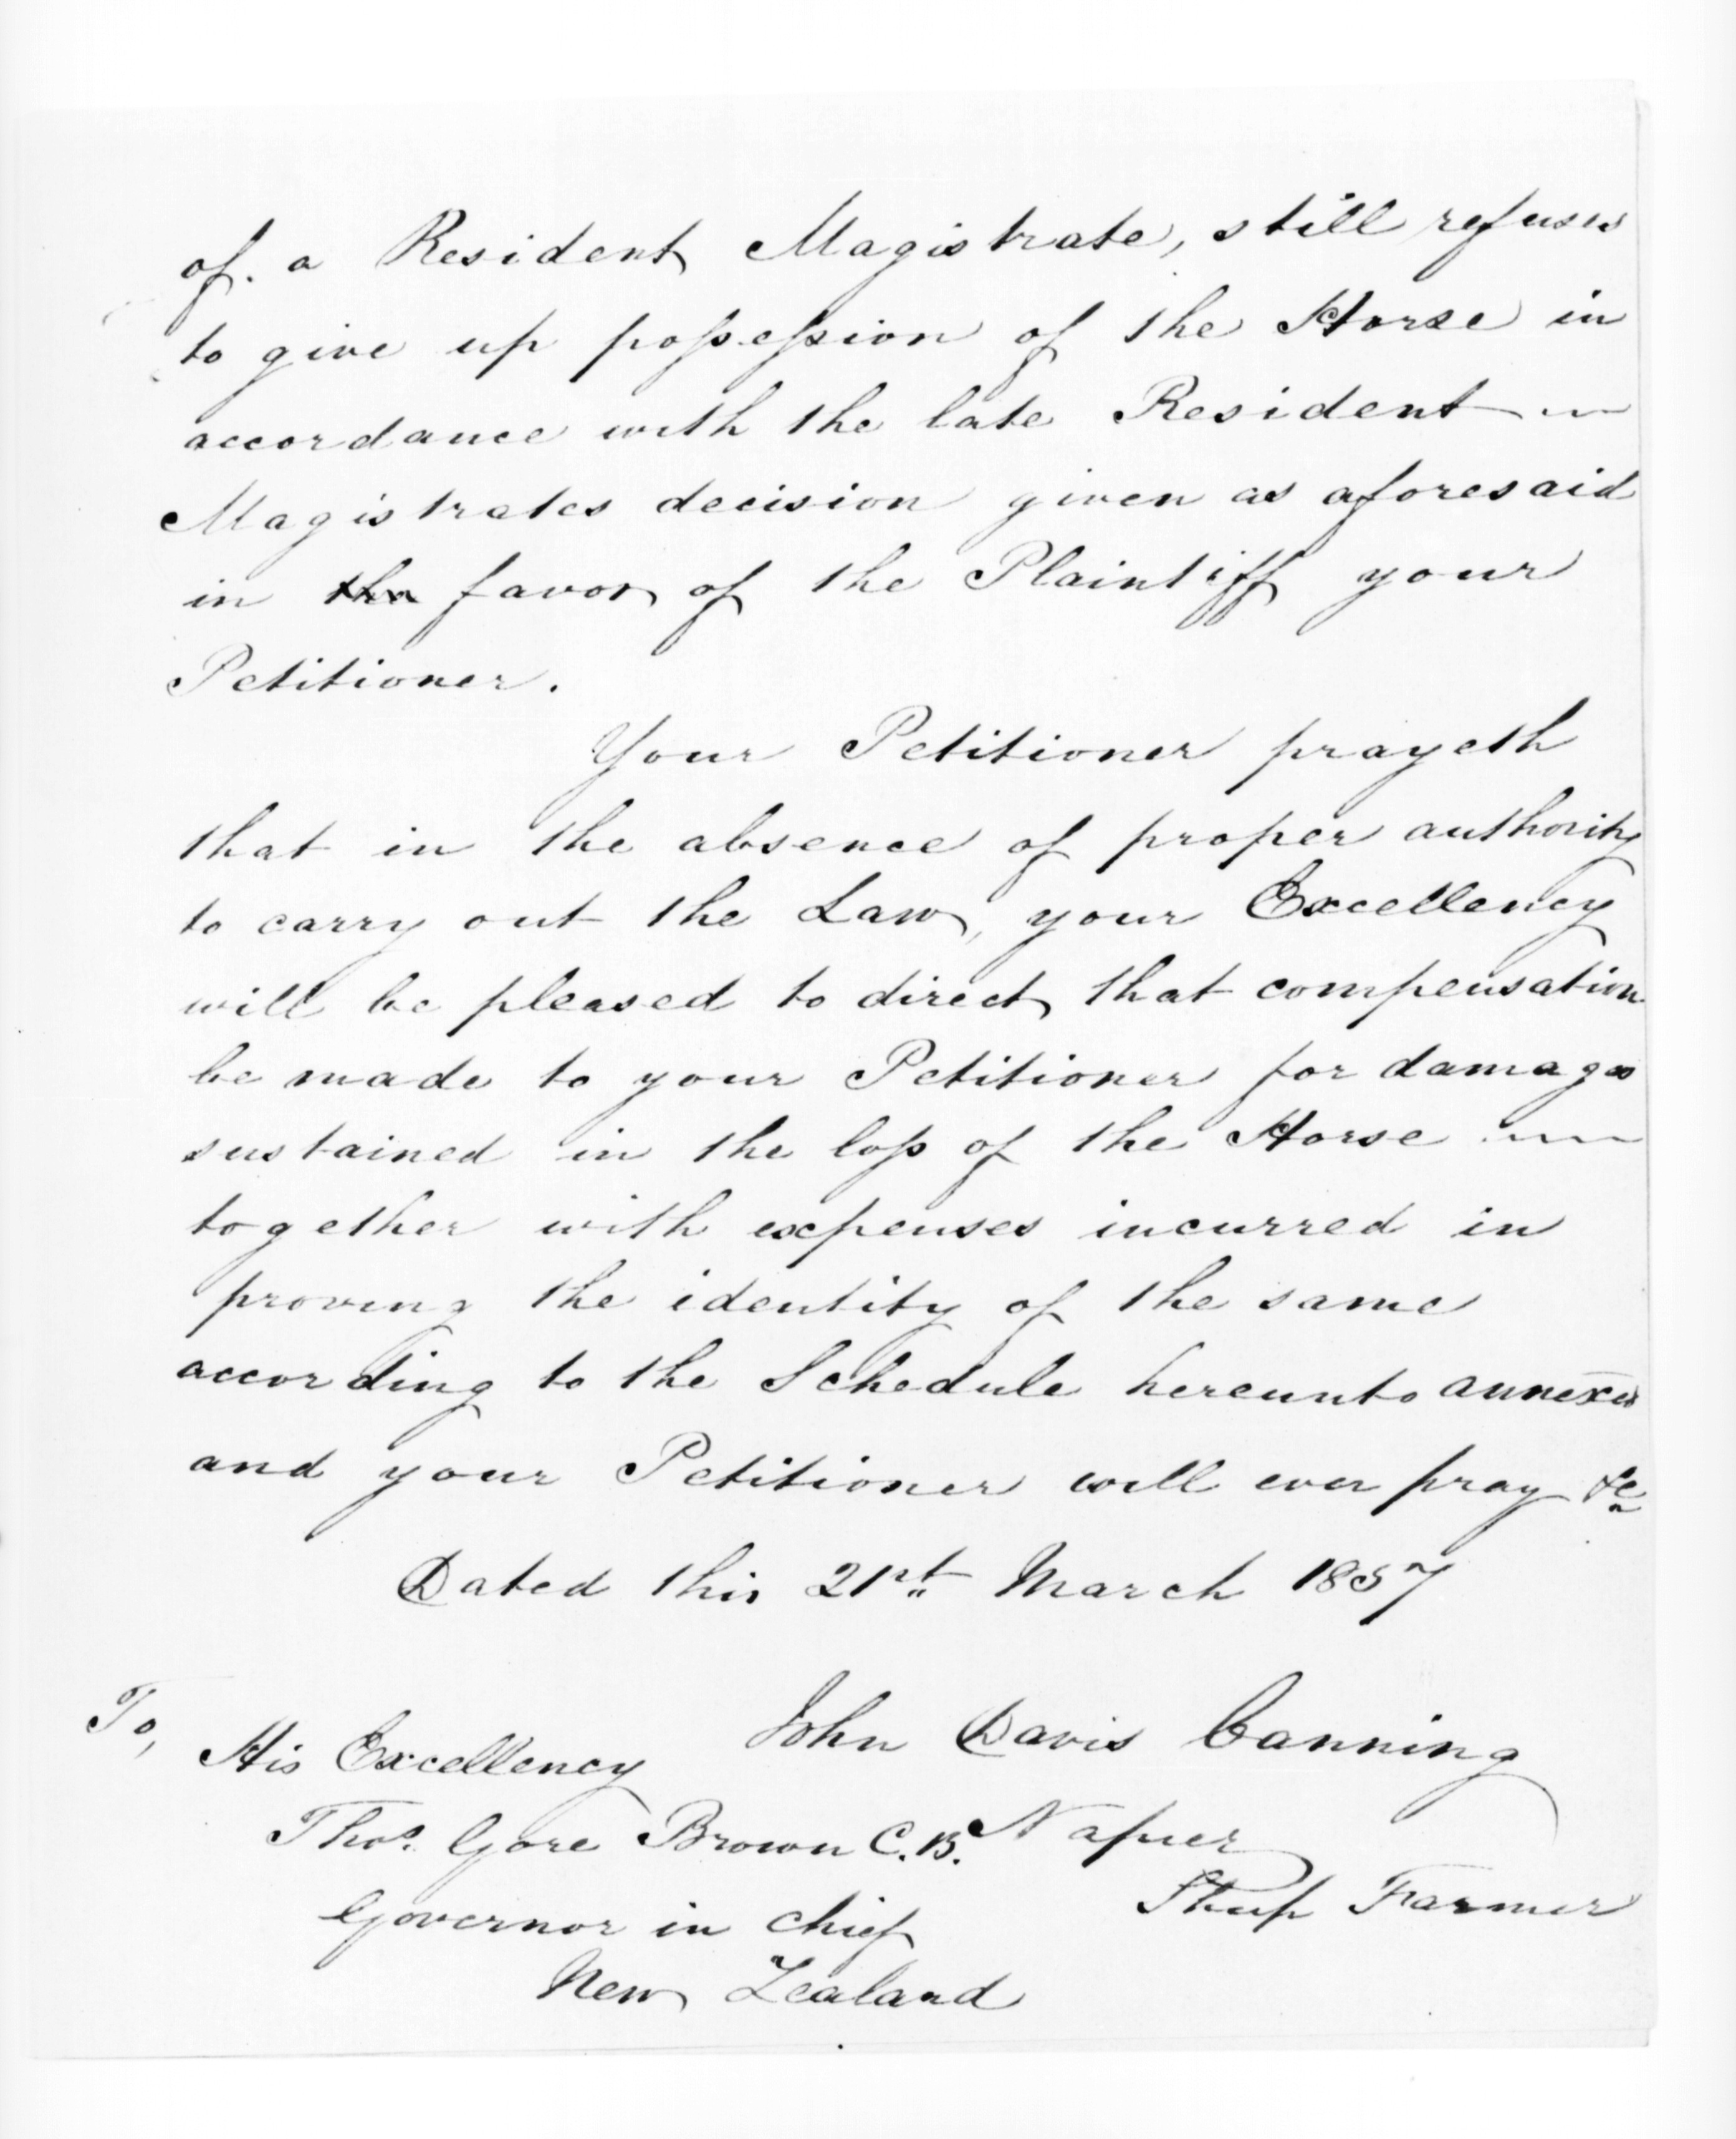 of a Resident Magistrate, still refuses
to give up possession of the Horse in
accordance with the late Resident
Magistrates decision given as aforesaid
in the favor of the Plaintiff your
Petitioner.
Your Petitioner prayeth
that in the absence of proper authority
to carry out the Law, your Excellency
will be pleased to direct that compensation
be made to your Petitioner for damages
sustained in the loss of the Horse
together with expenses incurred in
proving the identity of the same
according to the Schedule hereunto annexed
and your Petitioner will ever pray &c
Dated this 21st March 1857
John Davis Canning
To,
His Excellency
Thos. Gore Brown C.B.
Napier
Sheep Farmer
Governor in Chief
New Zealand